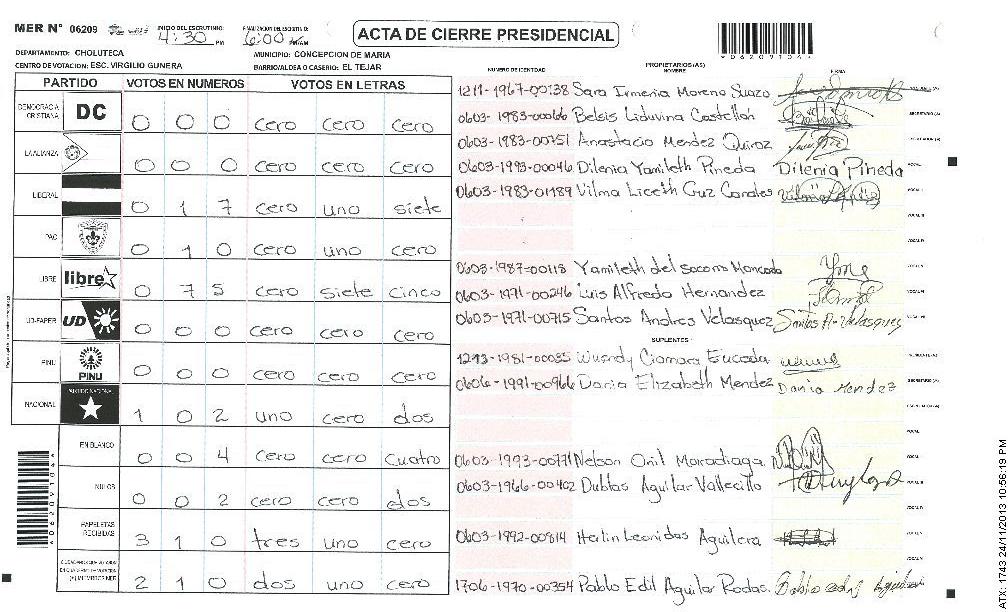 MER N° 06209 INICIO DEL ESCRUTINIO: 4:30 PM FINALIZACION DEL ESCRUTINIO: 6:00
ACTA DE CIERRE PRESIDENCIAL
*06209104*
DEPARTAMENTO: CHOLUTECA MUNICIPIO: CONCEPCION DE MARIA
CENTRO DE VOTACION: ESC. VIRGILIO GUNERA BARRIO/ALDEA O CASERIO: EL TEJAR
PARTIDO VOTOS EN NUMEROS VOTOS EN LETRAS
DEMOCRACIA CRISTIANA DC 0 0 0 cero cero cero
LA ALIANZA 0 0 0 cero cero cero
LIBERAL 0 1 7 cero uno siete
PAC 0 1 0 cero uno cero
LIBRE libre 0 7 5 cero siete cinco
UD-FAPER UD 0 0 0 cero cero cero
PINU PINU 0 0 0 cero cero cero
NACIONAL PARTIDO NACIONAL 1 0 2 uno cero dos
EN BLANCO 0 0 4 cero cero cuatro
NULOS 0 0 2 cero cero dos
PAPELETAS RECIBIDAS 3 1 0 tres uno cero
CIUDADANOS QUE VOTARON EN CUADERNO DE VOTACION (+) MIEMBROS MER 2 1 0 dos uno cero
PROPIETARIOS (AS)
NUMERO DE IDENTIDAD NOMBRE FIRMA
1211-1967-00138 Sara Irmenia Moreno Suazo
0603-1983-00066 Belsis Liduvina Castellón SECRETARIO (A)
0603-1983-00751 Anastacio Mendez Quiroz
0603-1993-00046 Dilenia Yamileth Pineda Dilenia Pineda
0603-1983-01189 Vilma Liceth Cruz Canales
0603-1987-00118 Yamileth del socorro Moncada
0603-1971-00246 Luis Alfredo Hernandez
0603-1971-00715 Santos Andres Velasquez Santos A- Velasquez
SUPLENTES
1293-1981-00035 Wendy Ciomara
0606-1991-00966 Dania Elizabeth Mendez Dania Mendez SECRETARIO (A)
0603-1993-00771 Nelson Onil Maradiaga
0603-1966-00402 Dublas Aguilar Vallecillo
0603-1992-00814 Herlin Leonidas Aguilera
1706-1970-00354 Pablo Edil Aguilar Rodas.
*06209104*
ATX: 1743 24/11/2013 10:56:19 PM